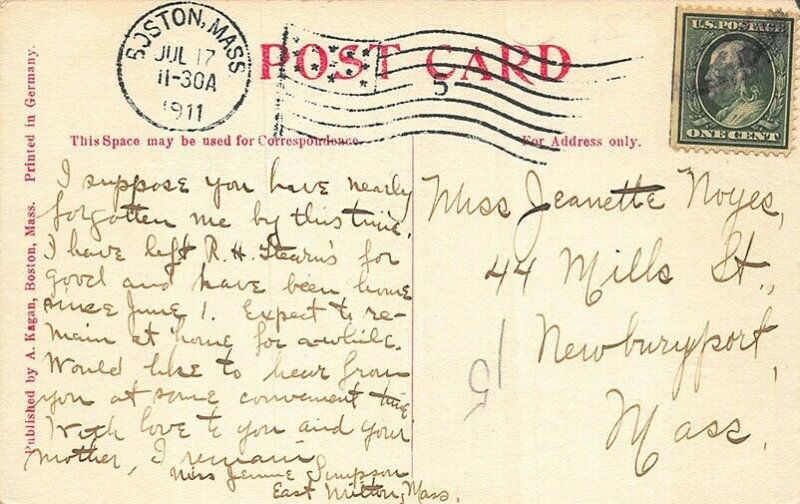 BOSTON, MASS
JUL 17
11-30A
1911
POST CARD
5
U.S. POSTAGE
ONE CENT
This Space may be used for Correspondence.
For Address only.
Published by A. Kagan, Boston, Mass. Printed in Germany.
I suppose you have nearly
forgotten me by this time.
I have left R. H. Stearn's for
good and have been home
since June 1. Expect to re-
main at home for awhile.
Would like to hear from
you at some convenient time
With love to you and your
mother, I remain
Miss Jennie Simpson
East Milton, Mass.
Miss Jeanette Noyes,
44 Mills St.,
Newburyport,
Mass.
15